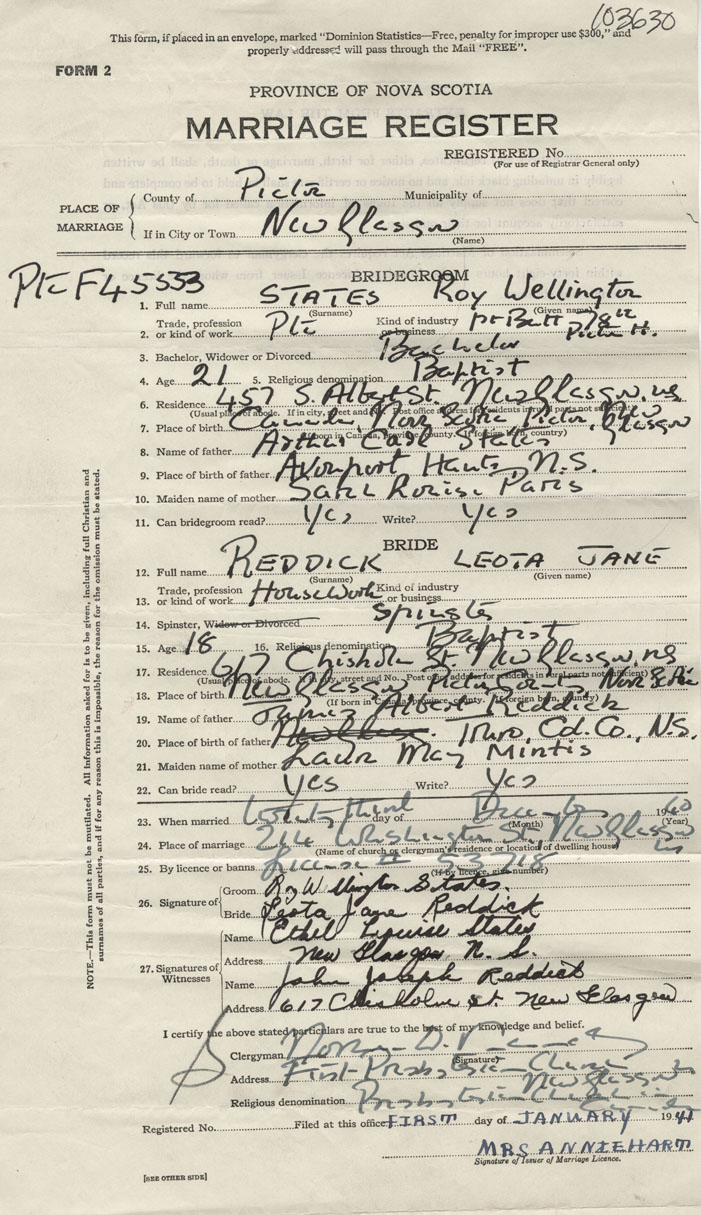 103630
This form, if placed in an envelope, marked "Dominion Statistics—Free, penalty for improper use $300," and
properly addressed will pass through the Mail "FREE".
FORM 2
PROVINCE OF NOVA SCOTIA
MARRIAGE REGISTER
REGISTERED No.
(For use of Registrar General only)
PLACE OF MARRIAGE
County of Pictou Municipality of
If in City or Town New Glasgow
(Name)
Pte F45553
BRIDEGROOM
1. Full name STATES Roy Wellington
(Surname) (Given name)
2. Trade, profession or kind of work Pte Kind of industry or business Pictou H.
3. Bachelor, Widower or Divorced Bachelor
4. Age 21 5. Religious denomination Baptist
6. Residence 457 S. Albert St. New Glasgow, NS
(Usual place of abode. If in city, street and No. Post office address for residents in rural parts not sufficient)
7. Place of birth Canada, Nova Scotia, Pictou, New Glasgow
(If born in Canada, province, county. If foreign by country)
8. Name of father Arthur Carl States
9. Place of birth of father Avonport Hants, N.S.
10. Maiden name of mother Sarah Paris
11. Can bridegroom read? Yes Write? Yes
BRIDE
12. Full name REDDICK LEOTA JANE
(Surname) (Given name)
13. Trade, profession or kind of work Housework Kind of industry or business
14. Spinster, Widow or Divorced Spinster
15. Age 18 16. Religious denomination Baptist
17. Residence 617 Chisholm St. New Glasgow, NS
(Usual place of abode. If in city, street and No. Post office address for residents in rural parts not sufficient)
18. Place of birth New Glasgow Pictou Nova Scotia
(If born in Canada, province, county. If foreign by country)
19. Name of father James Albert Reddick
20. Place of birth of father Truro, Col. Co., N.S.
21. Maiden name of mother Laura May Mintis
22. Can bride read? Yes Write? Yes
23. When married twenty third day of December 1940
(Month) (Year)
24. Place of marriage 214 Washington St, New Glasgow
(Name of church or clergyman's residence or location of dwelling house)
25. By licence or banns License # 53718
(If by licence, give number)
26. Signature of
Groom Roy Wellington States.
Bride Leota Jane Reddick
27. Signatures of Witnesses
Name Ethel Louise States
Address New Glasgow N. S.
Name John Joseph Reddick
Address 617 Chisholm St. New Glasgow
I certify the above stated particulars are true to the best of my knowledge and belief.
Clergyman
(Signature)
Address First Presbyterian Church New Glasgow
Religious denomination Presbyterian Church in
Registered No. Filed at this office FIRST day of JANUARY 1941
MRS ANNIE HART
Signature of Issuer of Marriage Licence.
[SEE OTHER SIDE]
NOTE.—This form must not be mutilated. All information asked for is to be given, including full Christian and
surnames of all parties, and if for any reason this is impossible, the reason for the omission must be stated.